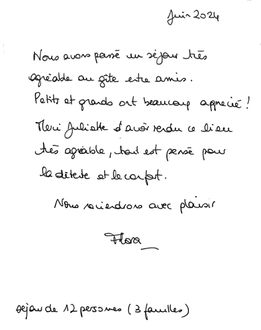 Juin 2024
Nous avons passé un séjour très
agréable au gîte entre amis.
Petits et grands ont beaucoup apprécié !
Merci Juliette d'avoir rendu ce lieu
très agréable, tout est pensé pour
la détente et le confort.
Nous reviendrons avec plaisir
Flora
séjour de 12 personnes (3 familles)